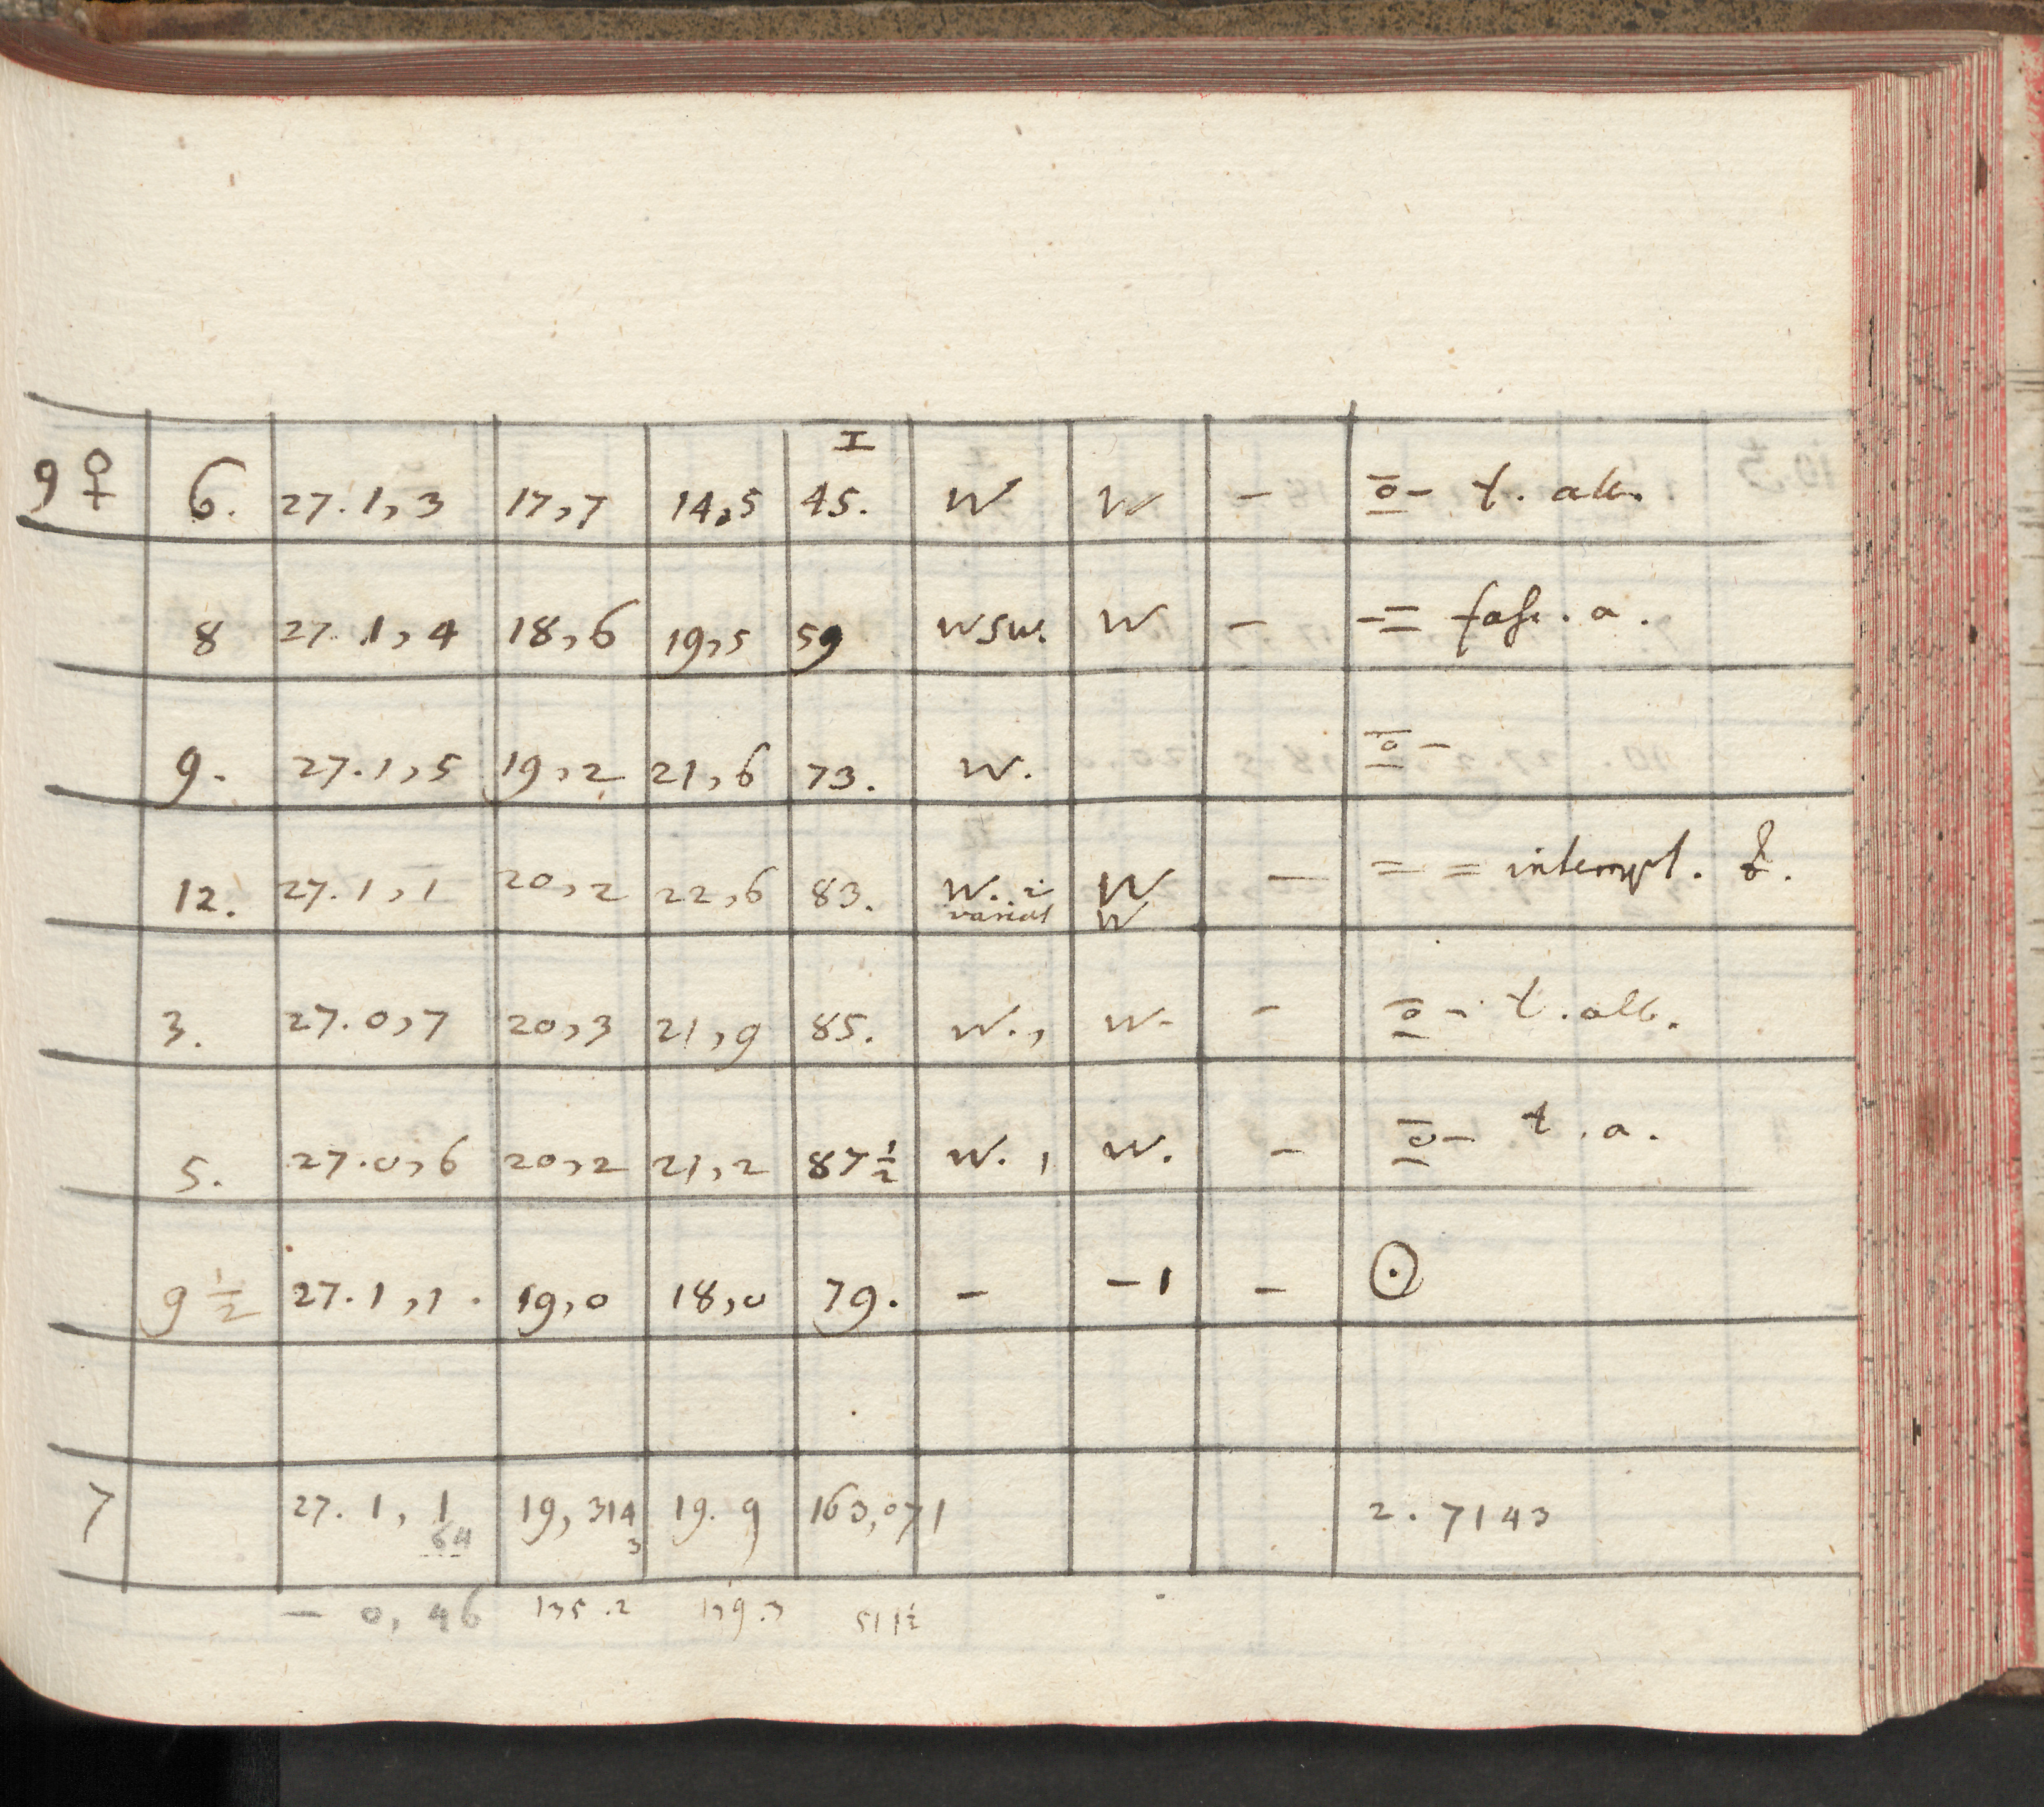 I
9 ♀ 6. 27.1,3 17,7 14,5 45. W W - t. alb.
8 27.1,4 18,6 19,5 59 WSW. W - -= fasc. a.
9. 27.1,5 19,2 21,6 73. W.
12. 27.1,1 20,2 22,6 83. W. 2 W - = =
variat W
3. 27.0,7 20,3 21,9 85. W., W. - t. alb.
5. 27.0,6 20,2 21,2 87 1/2 W., W. - t. a.
9 1/2 27.1,1. 19,0 18,0 79. - -1 - ⊙
7 27. 1, 1 19,314 19.9 163,071 2.7143
64 3
- 0,46 135.2 139.3 511 1/2